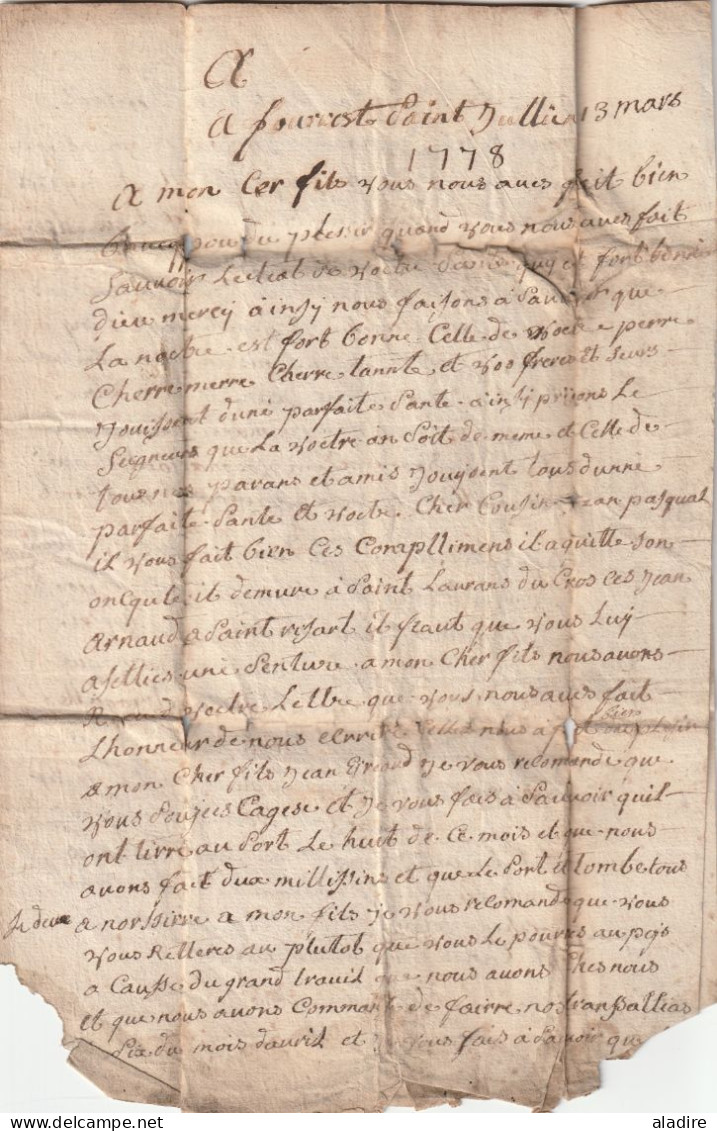 A
A fourrest Saint Jullien 13 mars
1778
A mon Cer fils vous nous aves fait bien
du plesir quand vous nous aves fait
Sauvoir Lestat de votre Sante quy et fort bonne
dieu mercy ainsy nous faisons à Sauvoir que
La nostre est fort bonne Celle de vostre perre
Cherre merre Cherre tannte et vos freres et seurs
Jouissent dune parfaite Sante ainsy prions Le
Segneur que La vostre an Soit de meme et Celle de
tous nos parans et amis Joujsent tous dunne
parfaite Sante et vostre Cher Cousin Jean pasqual
il vous fait bien Ces Complimens il a quitte son
oncqule it demure à Saint Laurans du Cros Ces Jean
Arnaud a Saint il feaut que vous Luy
une Senture a mon Cher fils nous avons
Recu vostre Lettre que vous nous aves fait
Lhonneur de nous Celle nous a fet bien du plesir
a mon Cher fils Jean Giraud Je vous recomande que
vous Soujees Cagese et Je vous fais à Sauvoir quil
ont tirre au Sort Le huit de Ce mois et que nous
avons fait dux millissins et que Le Sort et tombe tous
Je deux a a mon fils je vous recomande que vous
vous Retteres au plutot que vous Le pourres au pays
a Causse du grand travail que nous avons Ches nous
et que nous avons Commant de fairre nos transallias
Six du mois dauril et Je vous fais à Sauvoir que
aladire